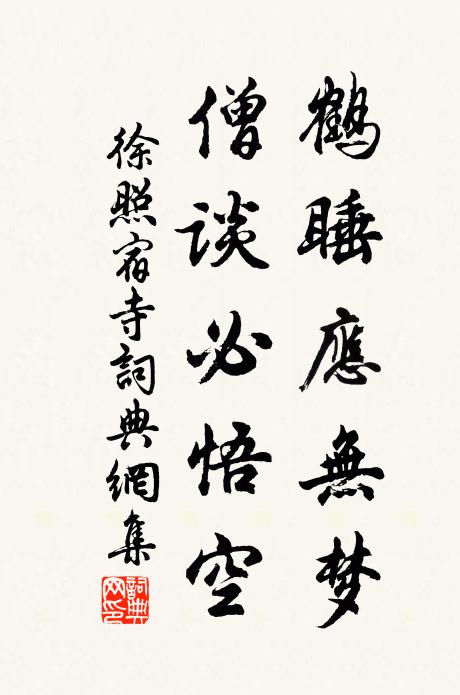 鹤睡應無梦
僧谈必悟空
徐照宿寺詞典網集
詞典网印